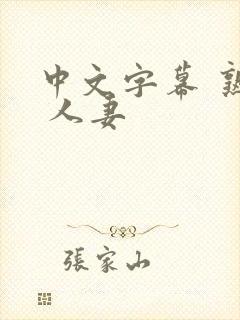 中文字幕 熟
人妻
張家山